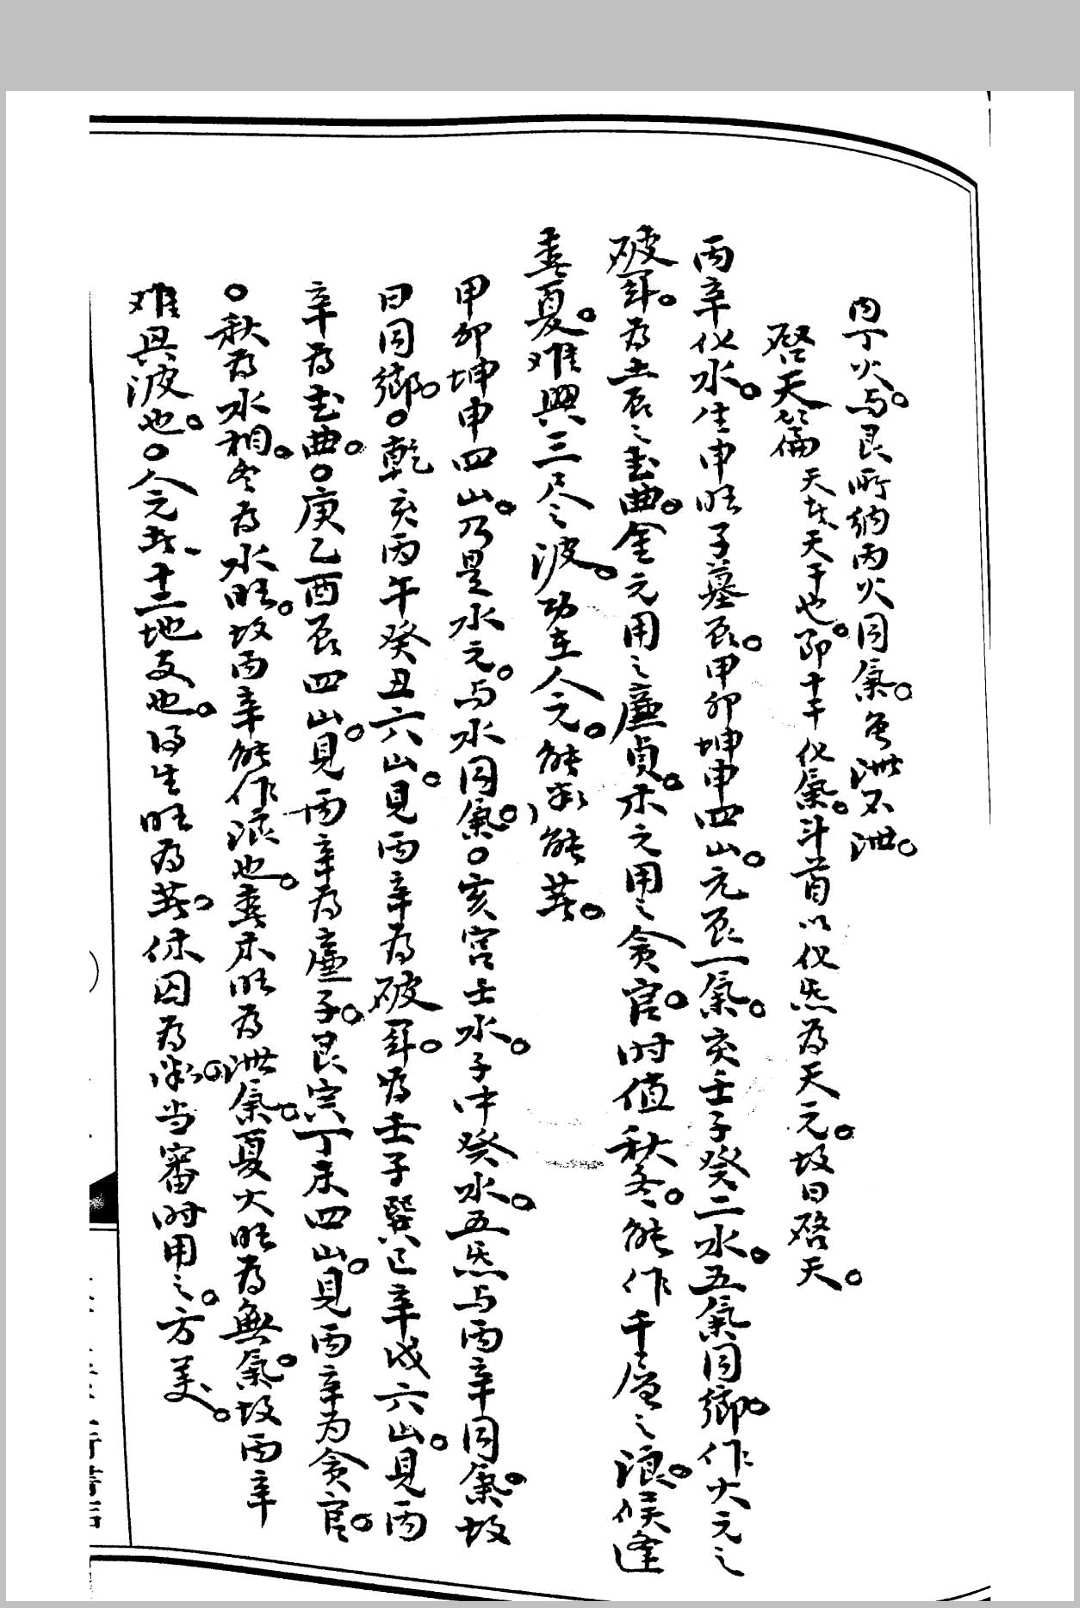 内丁火。与艮所纳丙火同氣。名泄不泄。
啓天篇 天者天干也。即十干化氣。斗首以化炁為天元。故曰啓天。
丙辛化水。生申旺子墓辰。甲卯坤申四山。元辰一氣。亥壬子癸二水。五氣同鄉。作火元之
破軍。為土辰之武曲。金元用之廉貞。木元用之貪官。时值秋冬。能作千層之浪。候逢
春夏。难興三尺之波。功在人元。能衰能旺。
甲卯坤申四山。乃是水元。与水同氣。○亥宫壬水。子中癸水。五炁与丙辛同氣。故
曰同鄉。○乾亥丙午癸丑六山。見丙辛為破軍。為壬子巽巳辛戌六山。見丙
辛為武曲。○庚乙酉辰四山。見丙辛為廉子。艮寅丁未四山。見丙辛为貪官。
○秋為水相。冬為水旺。故丙辛能作浪也。春木旺為泄氣。夏火旺為無氣。故丙辛
难興波也。○人元者十二地支也。得生旺為者。休囚為衰。当審时用之。方美。